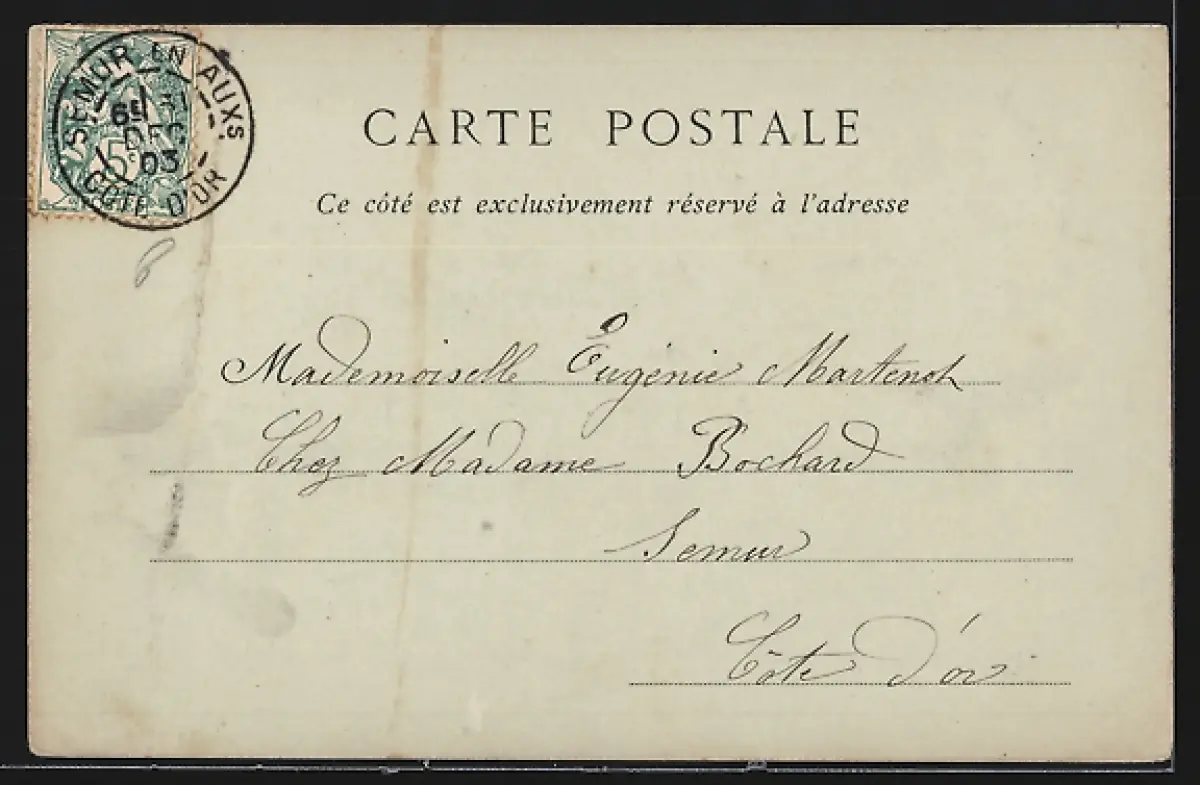 SEMUR EN AUXS
31
DEC
03
COTE D'OR
5c
CARTE POSTALE
Ce côté est exclusivement réservé à l'adresse
Mademoiselle Eugénie Martenot
Chez Madame Bochard
Semur
Côte d'or